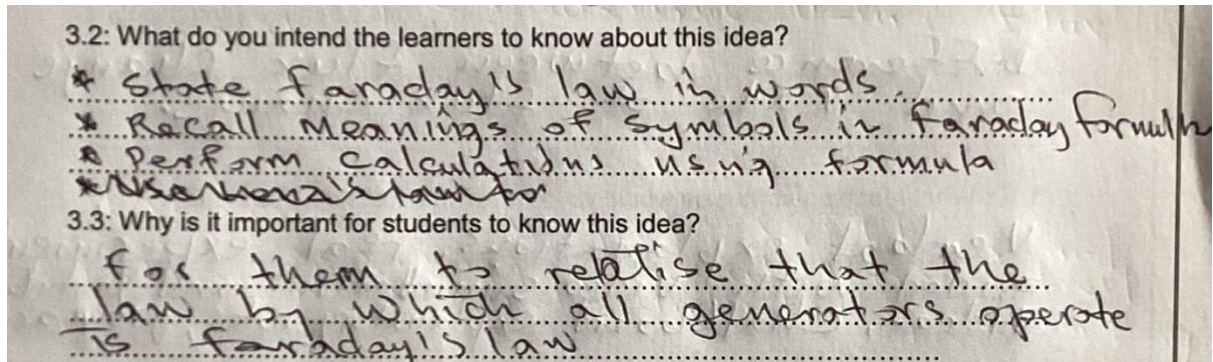 3.2: What do you intend the learners to know about this idea?
* State faraday's law in words.
* Recall Meanings of symbols in Faraday formula
* Perform calculations using formula
* Use Lenz's law to
3.3: Why is it important for students to know this idea?
for them to relatise that the
law by which all generators operate
is faraday's law